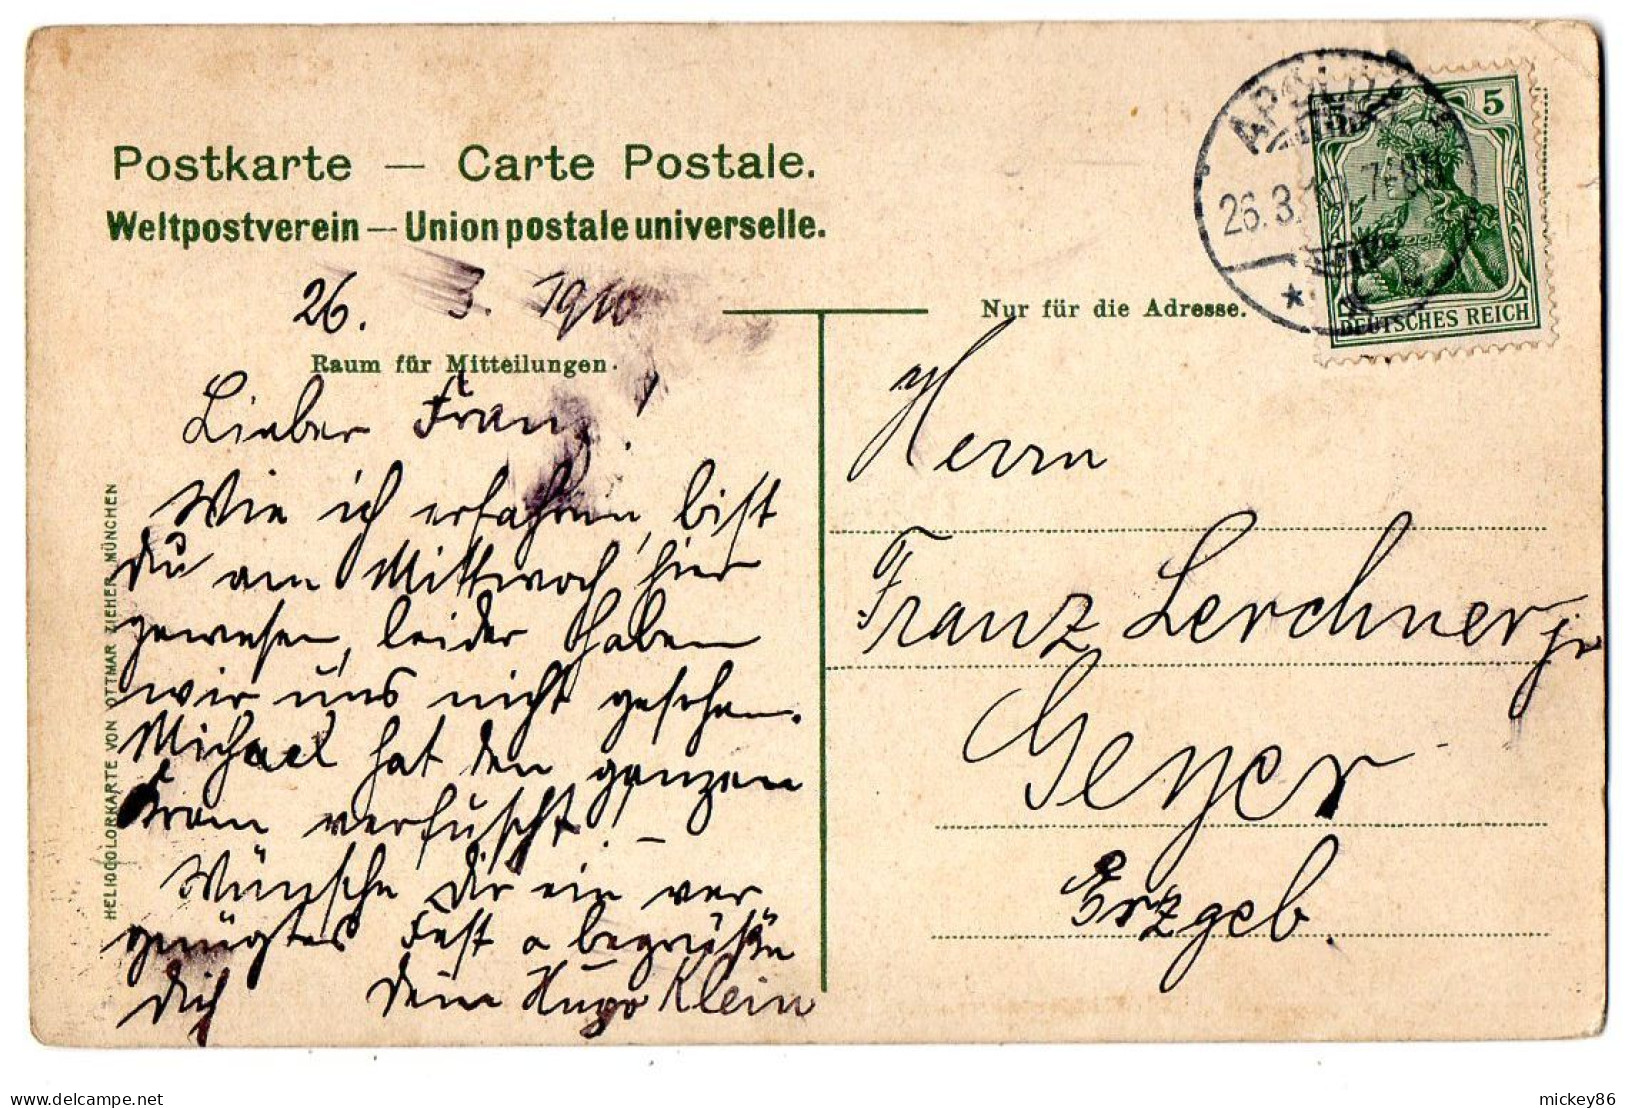 Postkarte — Carte Postale.
Weltpostverein — Union postale universelle.
26. 3. 1910
Raum für Mitteilungen.
Lieber Franz!
Wie ich erfahren, bist
Du am Mittwoch hier
gewesen, leider haben
wir uns nicht gesehen.
Michael hat den ganzen
Kram verfuscht! —
Wünsche Dir ein ver
gnügtes Fest u begrüße
Dich Dein Hugo Klein
HELIOCOLORKARTE VON OTTMAR ZIEHER, MÜNCHEN
Nur für die Adresse.
APOLDA
26.3.10. 7-8N
5
DEUTSCHES REICH
Herrn
Franz Lerchner jr
Geyer
Erzgeb.
mickey86